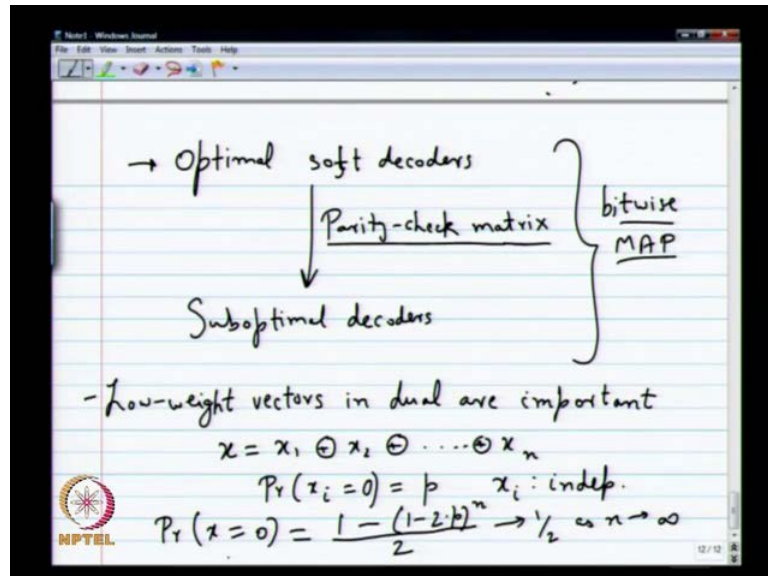 Note1 - Windows Journal
File Edit View Insert Actions Tools Help
→ Optimal soft decoders
Parity-check matrix
bitwise
MAP
Suboptimal decoders
- Low-weight vectors in dual are important
x = x₁ ⊕ x₂ ⊕ ..... ⊕ xₙ
Pr(xᵢ = 0) = p xᵢ : indep.
Pr(x = 0) = (1 - (1-2·p)ⁿ)/2 → 1/2 as n → ∞
NPTEL
12/12